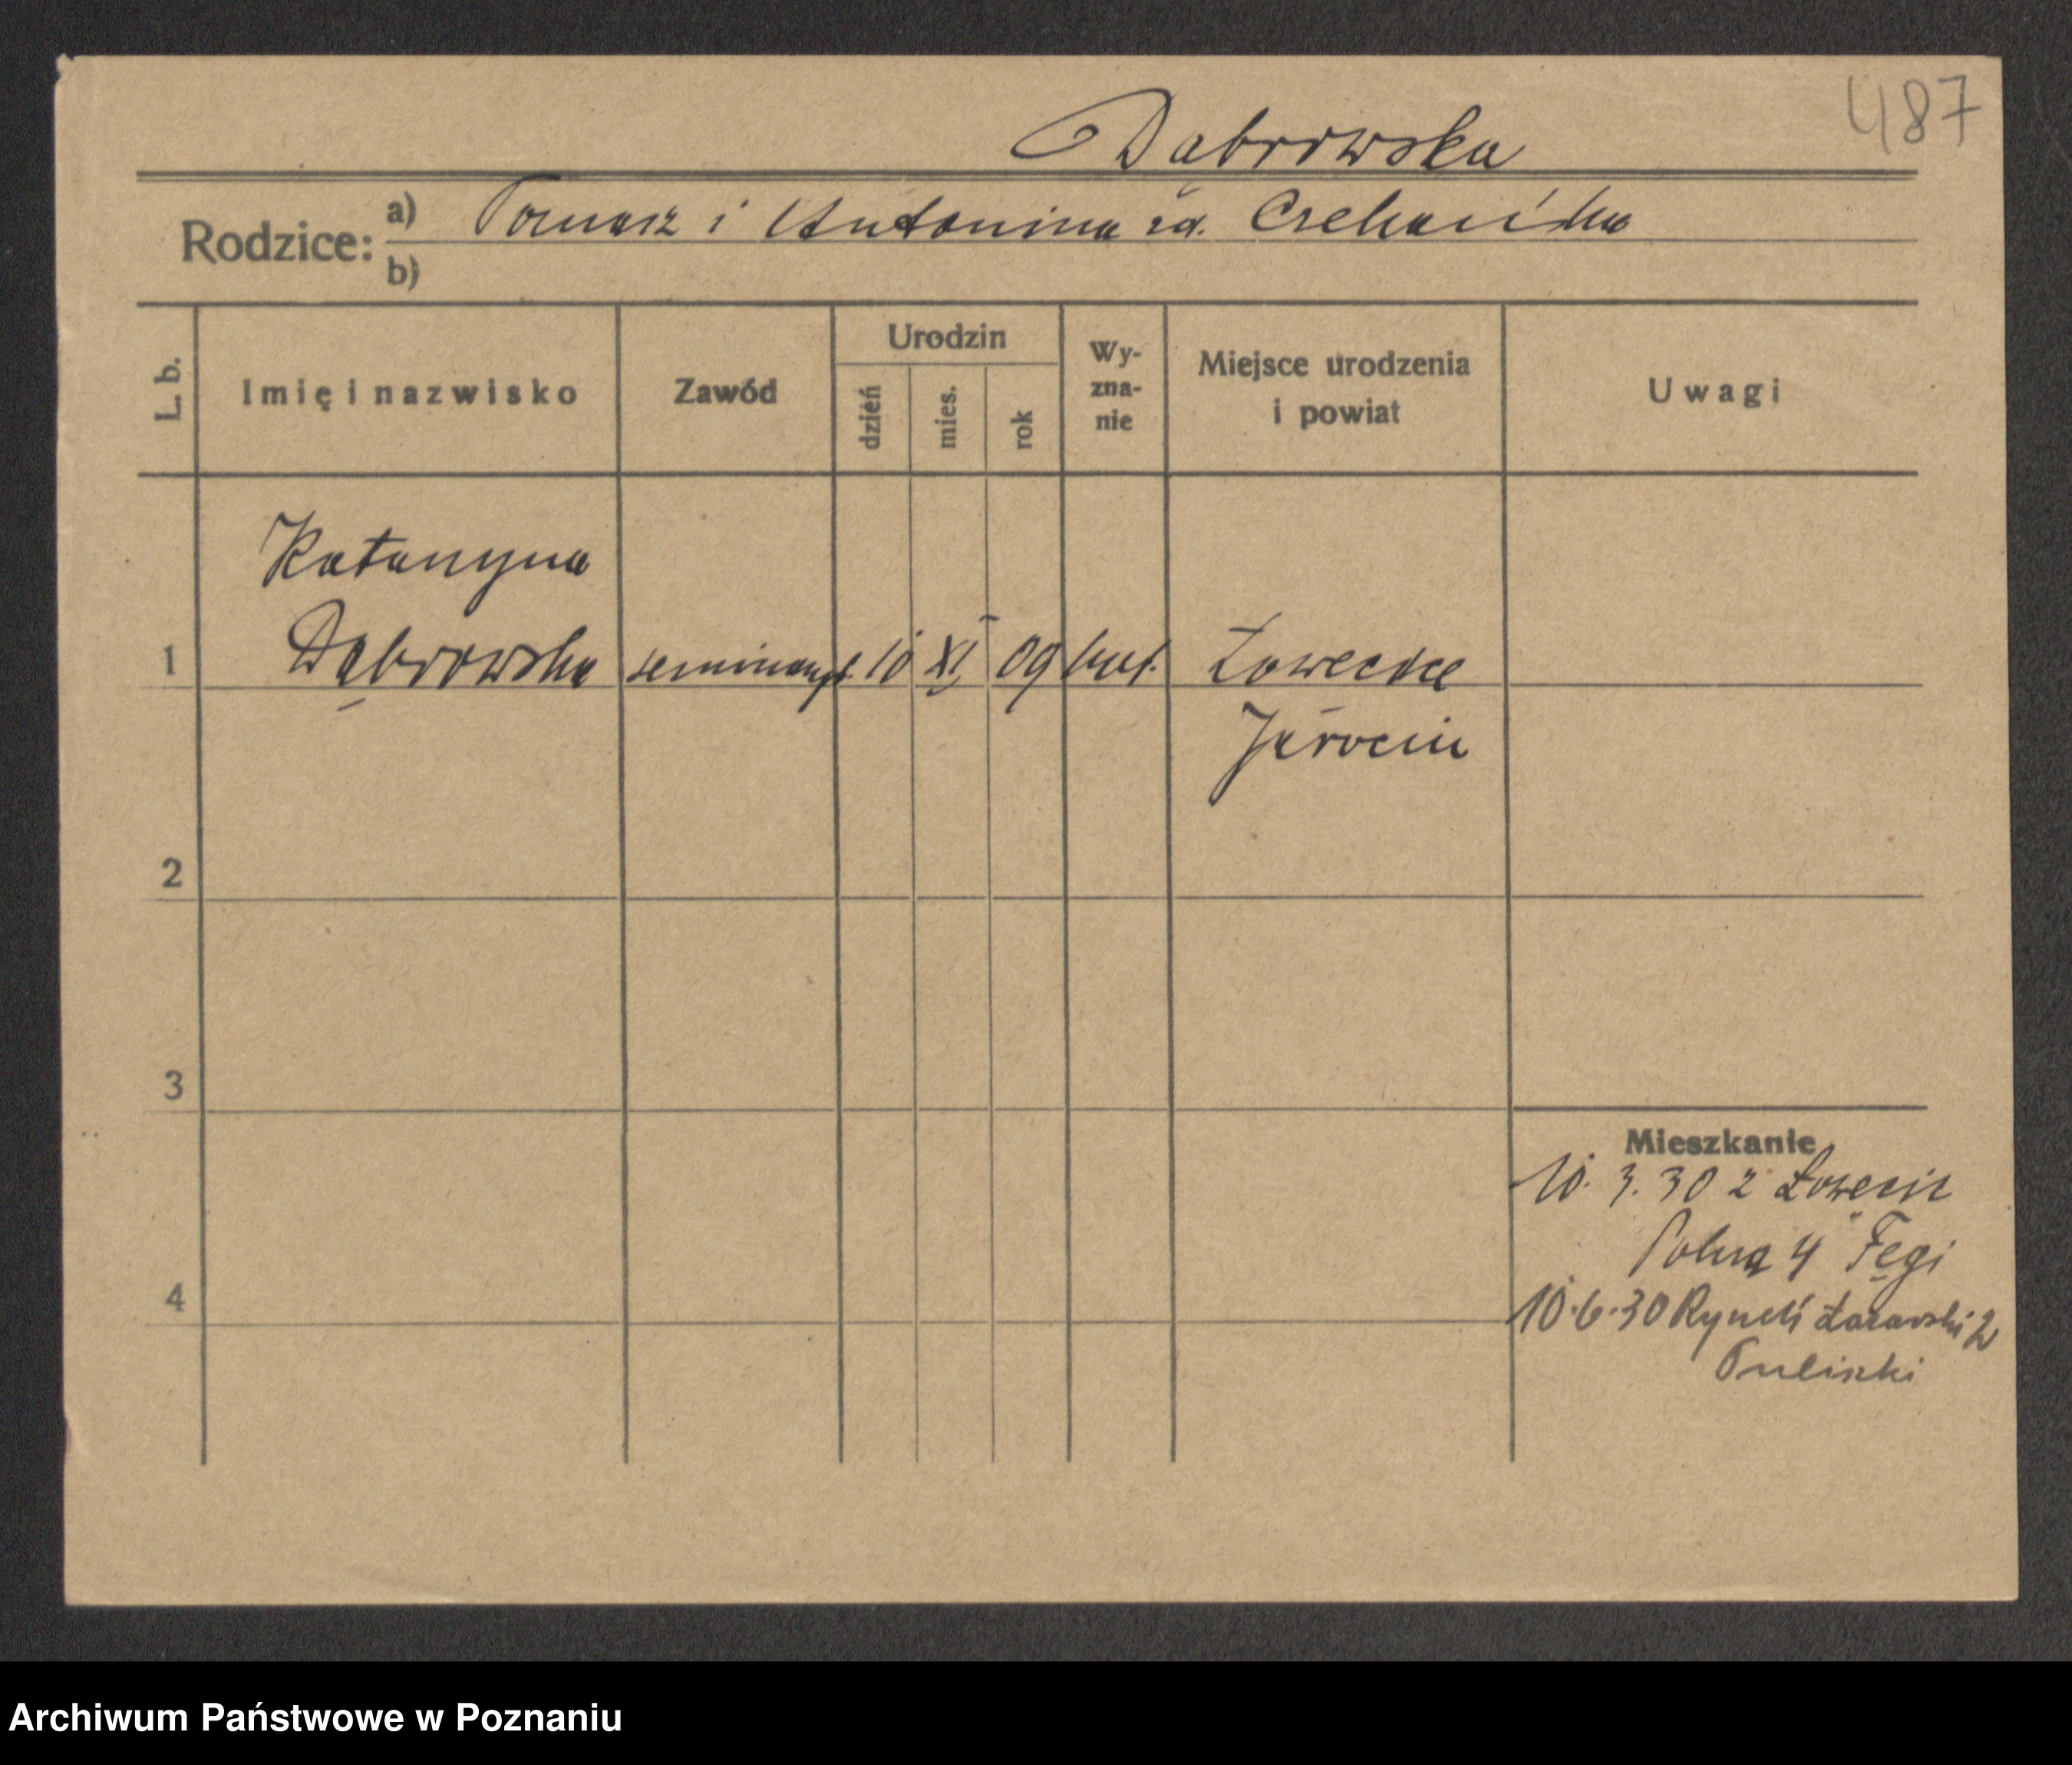 487
Dąbrowska
Rodzice: a) Tomasz i Antonina zd. Czekańska
b)
L. b. Imię i nazwisko Zawód Urodzin dzień mies. rok Wyznanie Miejsce urodzenia i powiat Uwagi
Katarzyna
1 Dąbrowska seminarzyst. 10 XI 09 kat. Łowęcice
Jarocin
2
3
Mieszkanie
10. 3. 30 z Łowęcic
Polna 4 Fęgi
4 10.6.30 Rynek Łazarski 2
Archiwum Państwowe w Poznaniu